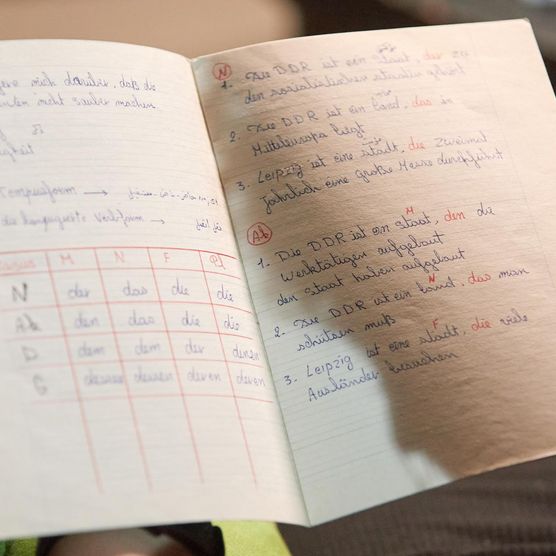 mich darüber, daß die
nicht sauber machen
Tempusform →
die konjugierte Verbform →
M N F Pl
N der das die die
Ak den das die die
D dem dem der denen
G dessen dessen deren deren
N
1. Die DDR ist ein Staat, der zu
den sozialistischen Staaten gehört
2. Die DDR ist ein Land, das in
Mitteleuropa liegt
3. Leipzig ist eine Stadt, die zweimal
jährlich eine große Messe durchführt
Ak
M
1. Die DDR ist ein Staat, den die
Werktätigen aufgebaut
den Staat haben aufgebaut
N
2. Die DDR ist ein Land, das man
schützen muß
F
3. Leipzig ist eine Stadt, die viele
Ausländer besuchen